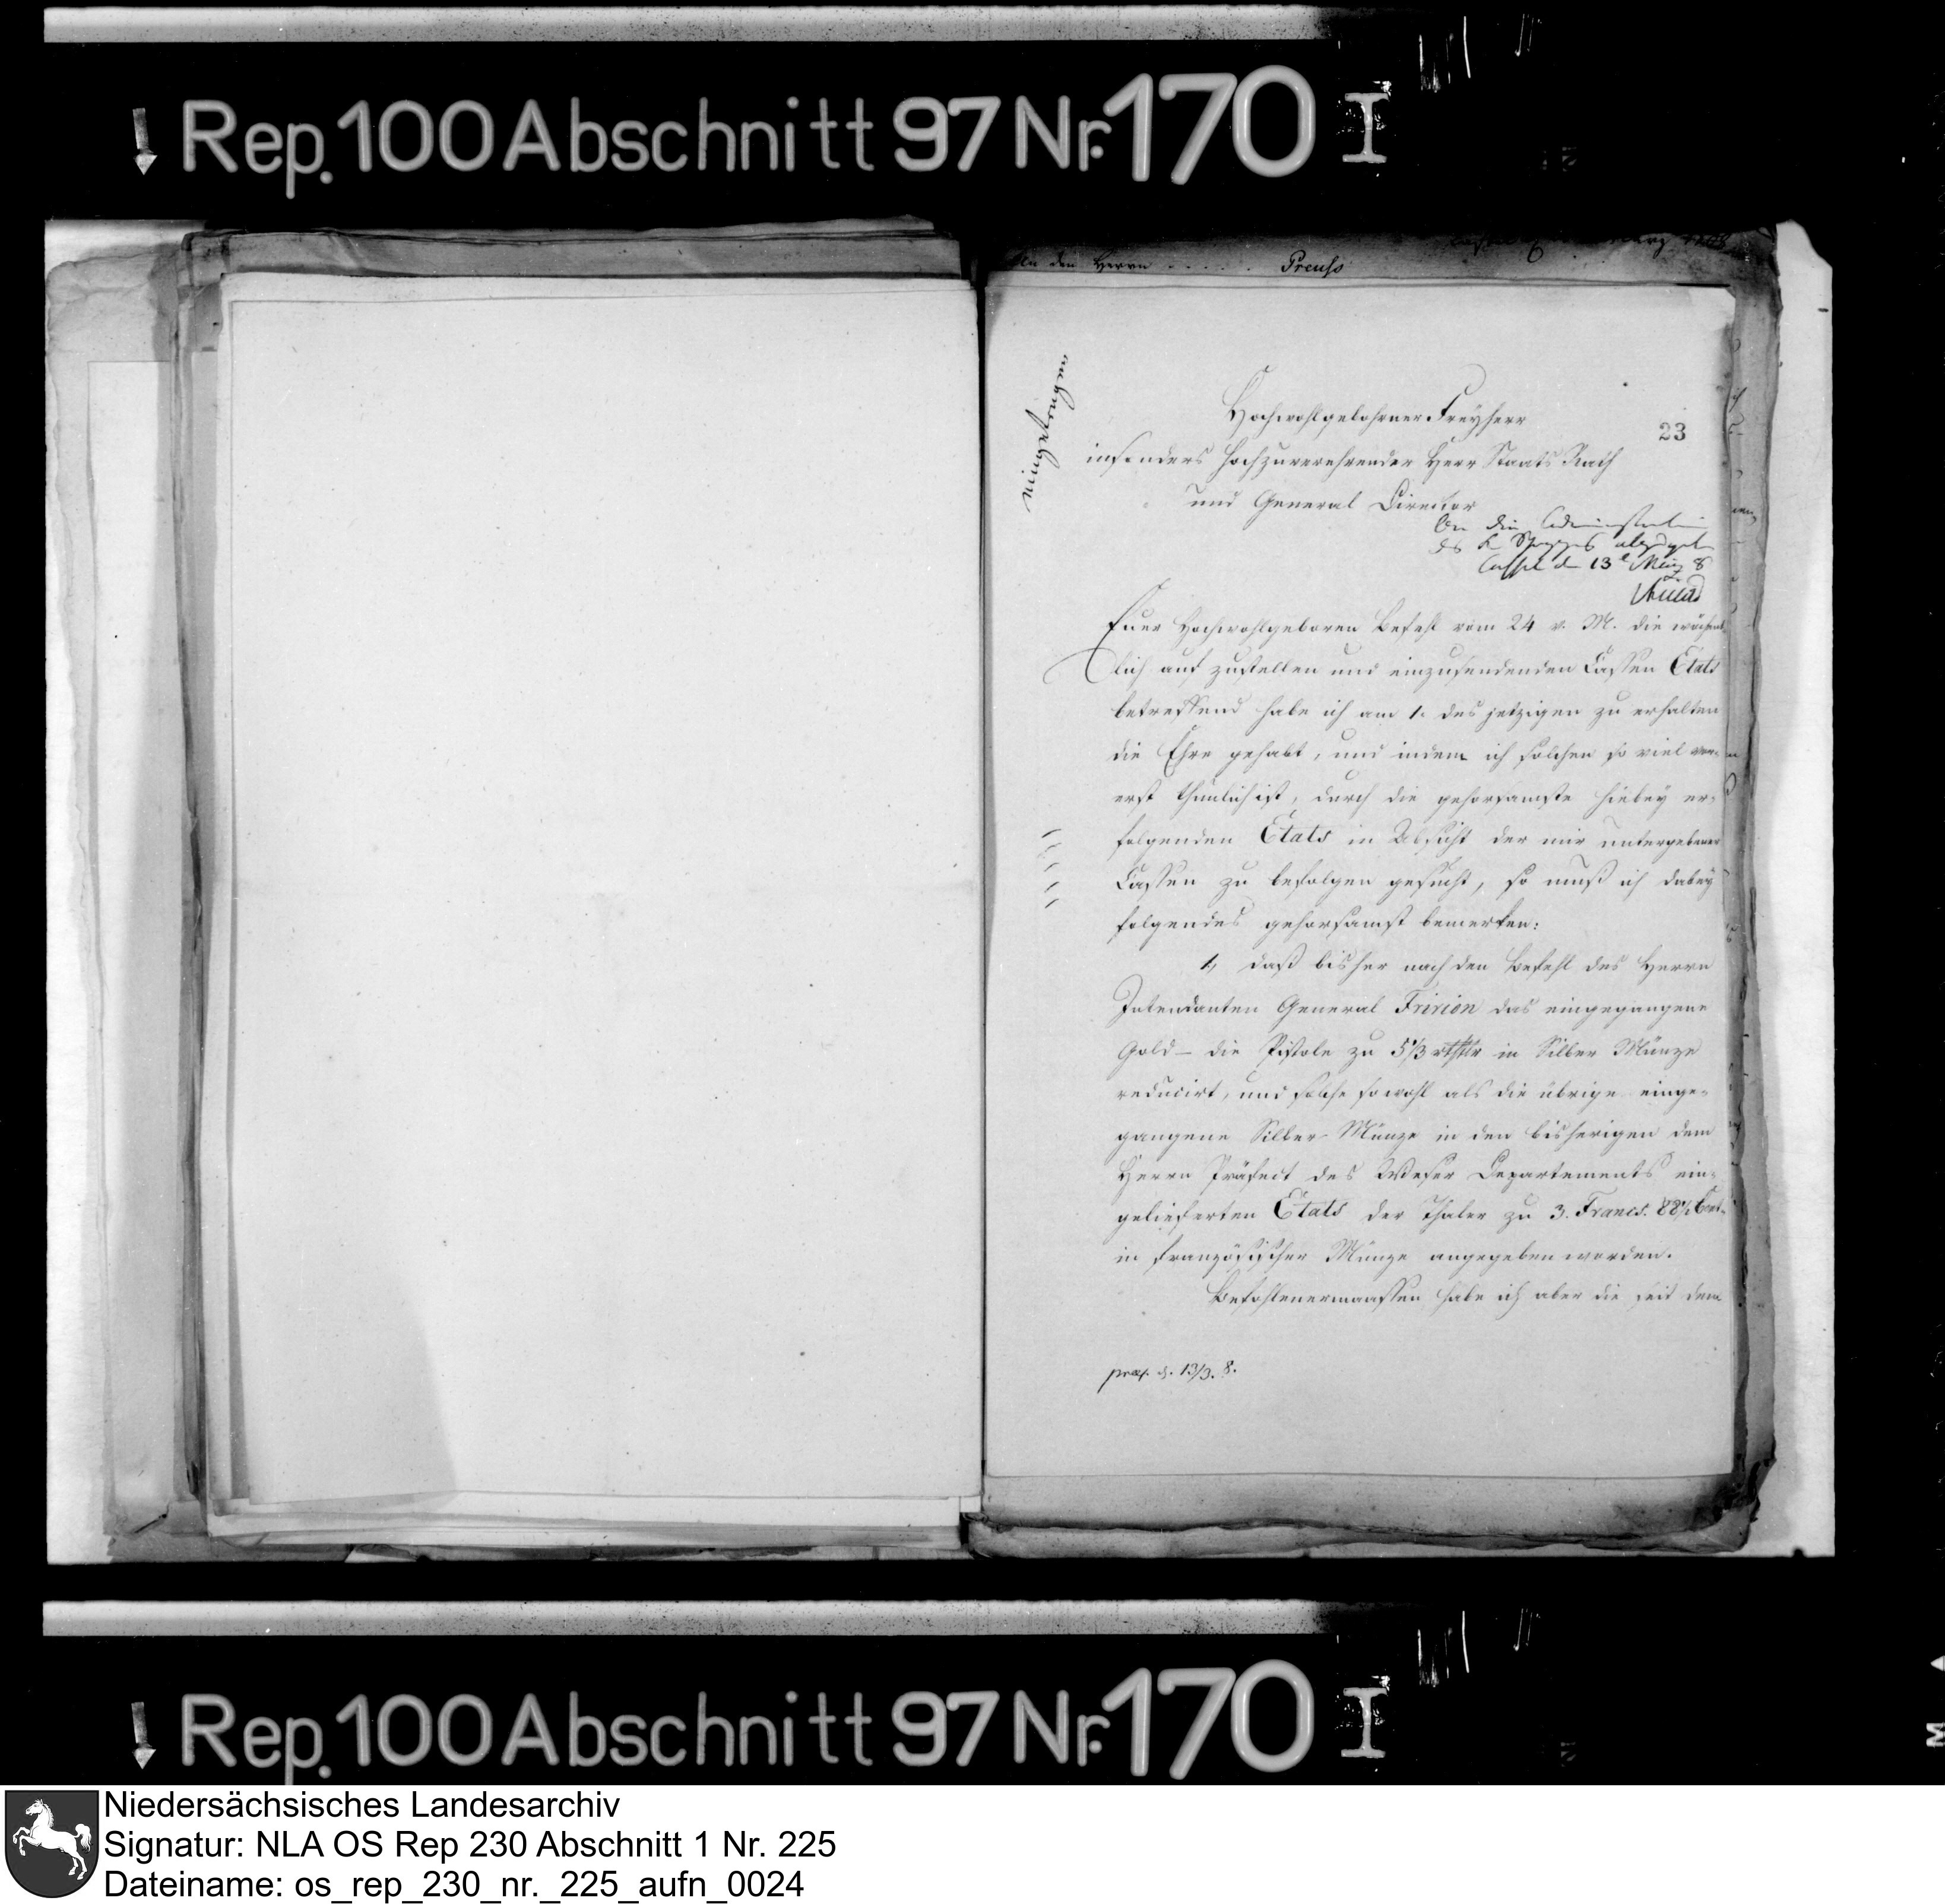 Rep. 100 Abschnitt 97 Nr. 170 I
An den Herrn . . . . . . Preuss
eingetragen
23
Hochwohlgebohrner Freyherr
insonders Hochzuverehrender Herr Staats Rath
und General Director
An die Administration
des
Cassel den 13t März 8
Euer Hochwohlgeboren Befehl vom 24 v. M. die wöchent-
lich aufzustellen und einzusendenden Cassen Etats
betreffend habe ich am 1. des jetzigen zu erhalten
die Ehre gehabt, und indem ich solchen so viel vor-
erst thunlich ist, durch die gehorsamste hiebey er-
folgenden Etats in Absicht der mir untergebenen
Cassen zu befolgen gesucht, so muß ich dabey
folgendes gehorsamst bemerken:
1, daß bisher nach den Befehl des Herrn
Intendanten General Fririon das eingegangene
Gold – die Pistole zu 5 1/3 rthlr in Silber Münze
reducirt, und solche sowohl als die übrige einge-
gangene Silber Münze in den bisherigen dem
Herrn Präfect des Weser Departements ein-
gelieferten Etats der Thaler zu 3. Francs. 88 1/2 Cent.
in französischer Münze angegeben worden.
Befohlenermaassen habe ich aber die seit dem
praes. d. 13/3. 8.
Rep. 100 Abschnitt 97 Nr. 170 I
Niedersächsisches Landesarchiv
Signatur: NLA OS Rep 230 Abschnitt 1 Nr. 225
Dateiname: os_rep_230_nr._225_aufn_0024